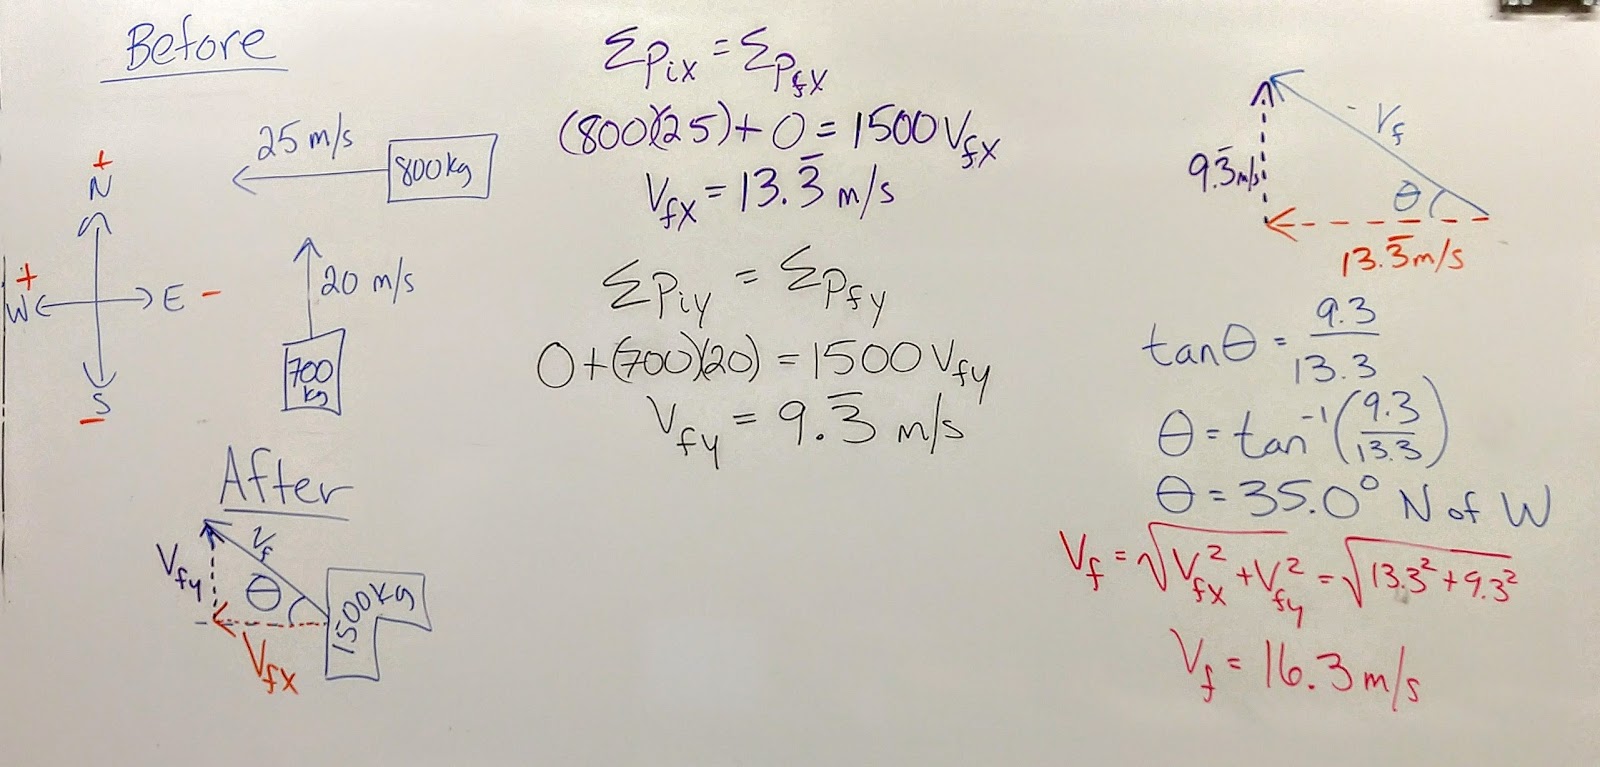 Before
25 m/s
800kg
+
N
+
W
E -
S
-
20 m/s
700
kg
After
Vf
Vfy
θ
Vfx
1500kg
Σpix = Σpfx
(800)(25) + 0 = 1500Vfx
Vfx = 13.3̅ m/s
Σpiy = Σpfy
0+(700)(20) = 1500Vfy
Vfy = 9.3̅ m/s
Vf
9.3̅m/s
θ
13.3̅m/s
tanθ = 9.3/13.3
θ = tan⁻¹(9.3/13.3)
θ = 35.0° N of W
Vf = √Vfx² + Vfy² = √13.3² + 9.3²
Vf = 16.3 m/s